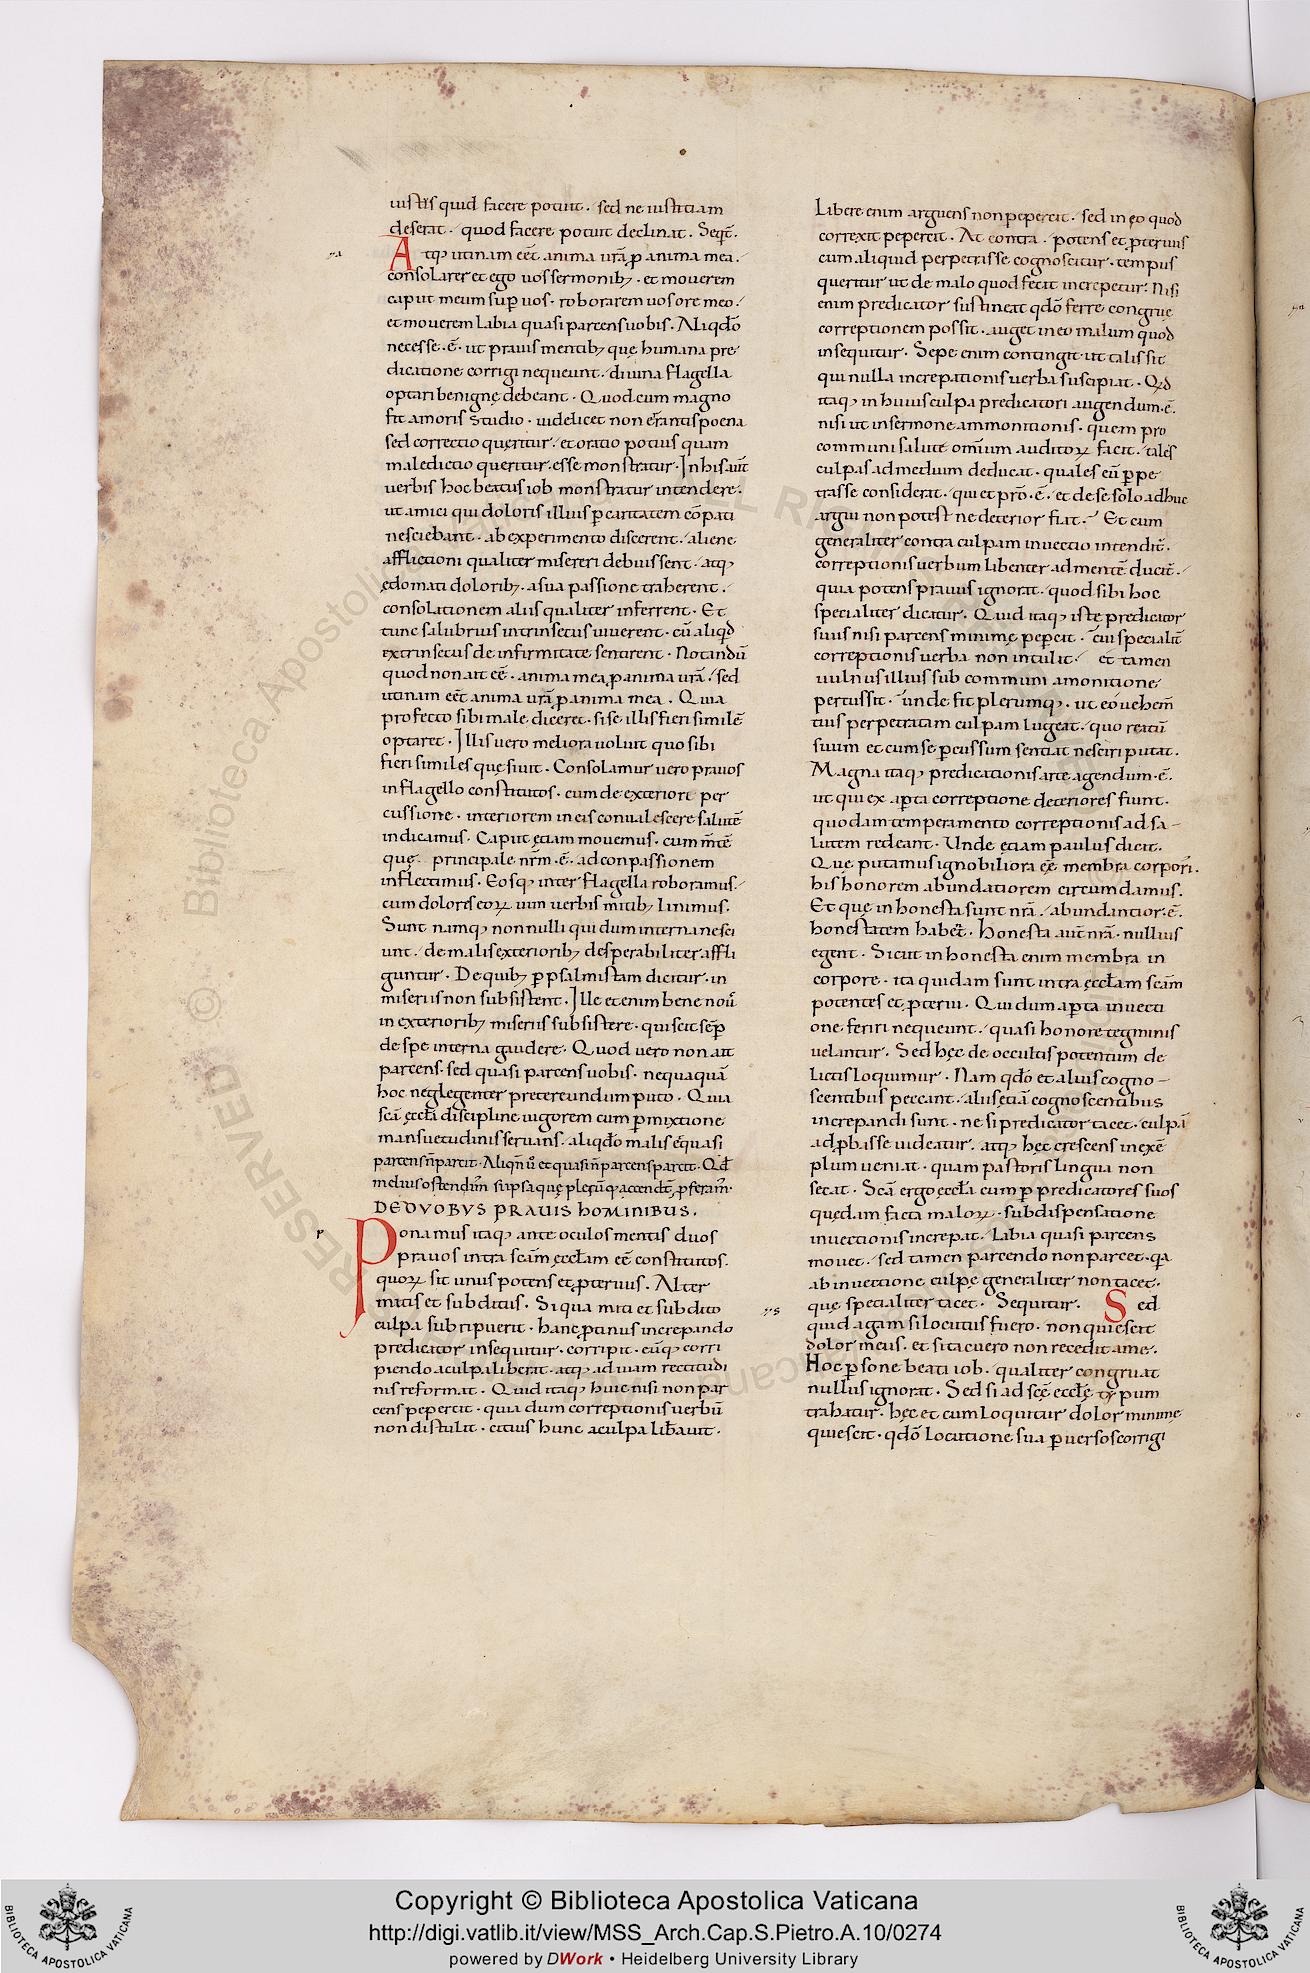 iustus quid facere potuit. sed ne iustitiam
deserat. quod facere potuit declinat. Seqt̄.
Atq; utinam eēt anima ur̄a ꝓ anima mea.
consolarer et ego uos sermonib; . et mouerem
caput meum suꝑ uos. roborarem uos ore meo.
et mouerem labia quasi parcens uobis. Aliqdō
necesse .ē. ut prauis mentib; que humana pre
dicatione corrigi nequeunt. diuina flagella
optari benignę debeant. Quod cum magno
fit amoris studio. uidelicet non errantis poena
sed correctio quęritur. et oratio potius quam
maledictio queritur. esse monstratur. In his aūt
uerbis hoc beatus iob monstratur intendere.
ut amici qui doloris illius ꝑ caritatem cōpati
nesciebant. ab experimento discerent. aliene
afflictioni qualiter misereri debuissent. atq;
ędomati dolorib; . a sua passione traherent.
consolationem aliis qualiter inferrent. Et
tunc salubrius intrinsecus uiuerent. cū aliqd
extrinsecus de infirmitate sentirent. Notandū
quod non ait eē. anima mea ꝓ anima ur̄a. sed
utinam eēt anima ur̄a ꝓ anima mea. Quia
profecto sibi male diceret. si se illis fieri similē
optaret. Illis uero meliora uoluit quo sibi
fieri similes quęsiuit. Consolamur uero prauos
in flagello constitutos. cum de exteriori per
cussione. interiorem in eis conualescere salutē
indicamus. Caput ęciam mouemus. cum m̄tē
quę principale nr̄m .ē. ad conpassionem
inflectimus. Eosq; inter flagella roboramus.
cum doloris eoꝝ uim uerbis mitib; linimus.
Sunt namq; non nulli qui dum interna nesci
unt. de malis exteriorib; desperabiliter affli
guntur. De quib; ꝑ psalmistam dicitur. in
miseriis non subsistent. Ille etenim bene nouit
in exteriorib; miseriis subsistere. qui scit sēꝑ
de spe interna gaudere. Quod uero non ait
parcens. sed quasi parcens uobis. nequaquā
hoc neglegenter pretereundum puto. Quia
sc̄a ęcclā discipline uigorem cum ꝑmixtione
mansuetudinis seruans. aliqdō malis ēquasi
parcens n̄ parcit. Aliqn̄ ū et quasi n̄ parcens parcit. Qd̄
melius ostendim̄. si ipsa quę plerūq; accendt̄. ꝓferam̄.
DE DVOBVS PRAVIS hOMINIBUS.
Ponamus itaq; ante oculos mentis duos
prauos intra sc̄am ęcclam eē constitutos.
quoꝝ sit unus potens et ꝓteruus. Alter
mitis et subditus. Si qua miti et subdito
culpa subripuerit. hanc ꝓtinus increpando
predicator insequitur. corripit. eūq; corri
piendo a culpa liberat. atq; ad uiam rectitudi
nis reformat. Quid itaq; huic nisi non par
cens pepercit. quia dum correptionis uerbū
non distulit. citius hunc a culpa libauit.
Libere enim arguens non pepercit. sed in eo quod
correxit pepercit. At contra. potens et ꝓteruus
cum aliquid perpetrasse cognoscitur. tempus
queritur ut de malo quod fecit increpetur. Nisi
enim predicator sustineat qdō ferre congrue
correptionem possit. auget in eo malum quod
insequitur. Sepe enim contingit ut talis sit
qui nulla increpationis uerba suscipiat. Qd
itaq; in huius culpa predicatori augendum .ē.
nisi ut in sermone ammonitionis. quem pro
communi salute omium auditoꝝ facit. tales
culpas ad medium deducat. quales eū ꝑpe
trasse considerat. qui et prō .ē. et de se solo adhuc
argui non potest ne deterior fiat. Et cum
generaliter contra culpam inuectio intendit̄.
correptionis uerbum libenter ad mentē ducit̄.
quia potens prauus ignorat. quod sibi hoc
specialiter dicatur. Quid itaq; iste predicator
suus nisi parcens minime pepcit. cui specialit̄
correptionis uerba non intulit. et tamen
uulnus illius sub communi amonitione
percussit. unde fit plerumq; . ut eo uehem̄
tius perpetratam culpam lugeat. quo reatū
suum et cum se ꝑcussum sentiat nesciri putat.
Magna itaq; predicationis arte agendum .ē.
ut qui ex aꝑta correptione deteriores fiunt.
quodam temperamento correptionis ad sa
lutem redeant. Unde ęciam paulus dicit.
Quę putamus ignobiliora eē membra corporis.
his honorem abundatiorem circumdamus.
Et quę inhonesta sunt nr̄a. abundantior .ē.
honestatem habet̄. honesta aut̄ nr̄a. nullius
egent. Sicut inhonesta enim membra in
corpore. ita quidam sunt intra ęcclam sc̄am
potentes et ꝓterui. Qui dum aꝑta inuecti
one feriri nequeunt. quasi honore tegminis
uelantur. Sed hęc de occultis potentum de
lictis loquimur. Nam qdō et aliis cogno
scentibus peccant. aliis ęciā cognoscentibus
increpandi sunt. ne si predicator tacet. culpā
adꝓbasse uideatur. atq; hęc crescens in exē
plum ueniat. quam pastoris lingua non
secat. Sc̄a ergo ęccla cum ꝑ predicatores suos
quędam facta maloꝝ. sub dispensatione
inuectionis increpat. labia quasi parcens
mouet. sed tamen parcendo non parcet. qa
ab inuectione culpę generaliter non tacet.
quę specialiter tacet. Sequitur. Sed
quid agam si locutus fuero. non quiescit
dolor meus. et si tacuero non recedit a me.
Hoc ꝑsone beati iob. qualiter congruat
nullus ignorat. Sed si ad scę̄ ecclę̄ typum
trahatur. hęc et cum loquitur dolor minime
quiescit. qdō locutione sua ꝑuersos corrigi
© Biblioteca Apostolica Vaticana
ALL RIGHTS RESERVED
Copyright © Biblioteca Apostolica Vaticana
http://digi.vatlib.it/view/MSS_Arch.Cap.S.Pietro.A.10/0274
powered by DWork • Heidelberg University Library
BIBLIOTECA APOSTOLICA VATICANA
BIBLIOTECA APOSTOLICA VATICANA